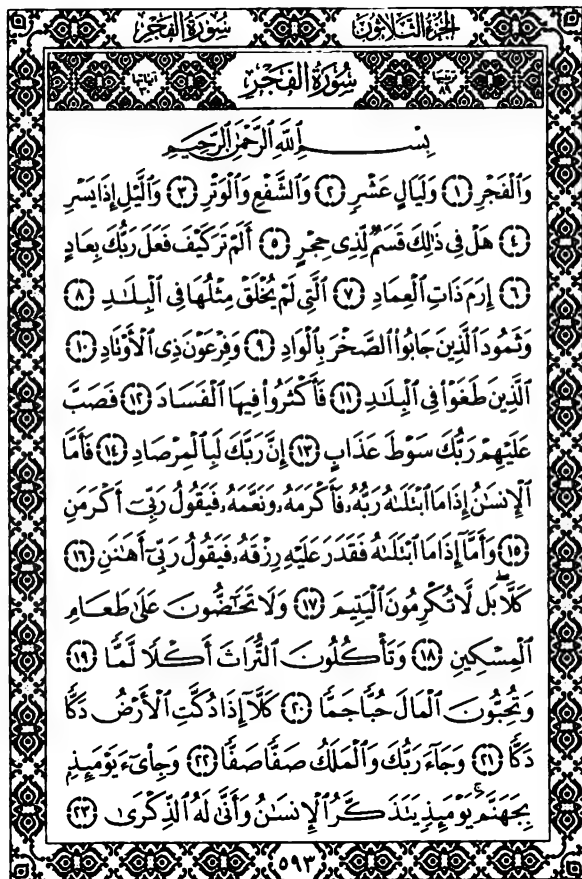 الجزء الثلاثون سورة الفجر
ترتيبها ٨٩ سُورَةُ الفَجْرِ آياتها ٣٠
بِسْمِ ٱللَّهِ ٱلرَّحْمَٰنِ ٱلرَّحِيمِ
وَٱلْفَجْرِ ١ وَلَيَالٍ عَشْرٍ ٢ وَٱلشَّفْعِ وَٱلْوَتْرِ ٣ وَٱلَّيْلِ إِذَا يَسْرِ
٤ هَلْ فِى ذَٰلِكَ قَسَمٌ لِّذِى حِجْرٍ ٥ أَلَمْ تَرَ كَيْفَ فَعَلَ رَبُّكَ بِعَادٍ
٦ إِرَمَ ذَاتِ ٱلْعِمَادِ ٧ ٱلَّتِى لَمْ يُخْلَقْ مِثْلُهَا فِى ٱلْبِلَٰدِ ٨
وَثَمُودَ ٱلَّذِينَ جَابُوا۟ ٱلصَّخْرَ بِٱلْوَادِ ٩ وَفِرْعَوْنَ ذِى ٱلْأَوْتَادِ ١٠
ٱلَّذِينَ طَغَوْا۟ فِى ٱلْبِلَٰدِ ١١ فَأَكْثَرُوا۟ فِيهَا ٱلْفَسَادَ ١٢ فَصَبَّ
عَلَيْهِمْ رَبُّكَ سَوْطَ عَذَابٍ ١٣ إِنَّ رَبَّكَ لَبِٱلْمِرْصَادِ ١٤ فَأَمَّا
ٱلْإِنسَٰنُ إِذَا مَا ٱبْتَلَىٰهُ رَبُّهُۥ فَأَكْرَمَهُۥ وَنَعَّمَهُۥ فَيَقُولُ رَبِّىٓ أَكْرَمَنِ
١٥ وَأَمَّآ إِذَا مَا ٱبْتَلَىٰهُ فَقَدَرَ عَلَيْهِ رِزْقَهُۥ فَيَقُولُ رَبِّىٓ أَهَٰنَنِ ١٦
كَلَّا ۖ بَل لَّا تُكْرِمُونَ ٱلْيَتِيمَ ١٧ وَلَا تَحَٰٓضُّونَ عَلَىٰ طَعَامِ
ٱلْمِسْكِينِ ١٨ وَتَأْكُلُونَ ٱلتُّرَاثَ أَكْلًا لَّمًّا ١٩
وَتُحِبُّونَ ٱلْمَالَ حُبًّا جَمًّا ٢٠ كَلَّآ إِذَا دُكَّتِ ٱلْأَرْضُ دَكًّا
دَكًّا ٢١ وَجَآءَ رَبُّكَ وَٱلْمَلَكُ صَفًّا صَفًّا ٢٢ وَجِا۟ىٓءَ يَوْمَئِذٍۭ
بِجَهَنَّمَ ۚ يَوْمَئِذٍ يَتَذَكَّرُ ٱلْإِنسَٰنُ وَأَنَّىٰ لَهُ ٱلذِّكْرَىٰ ٢٣
٥٩٣